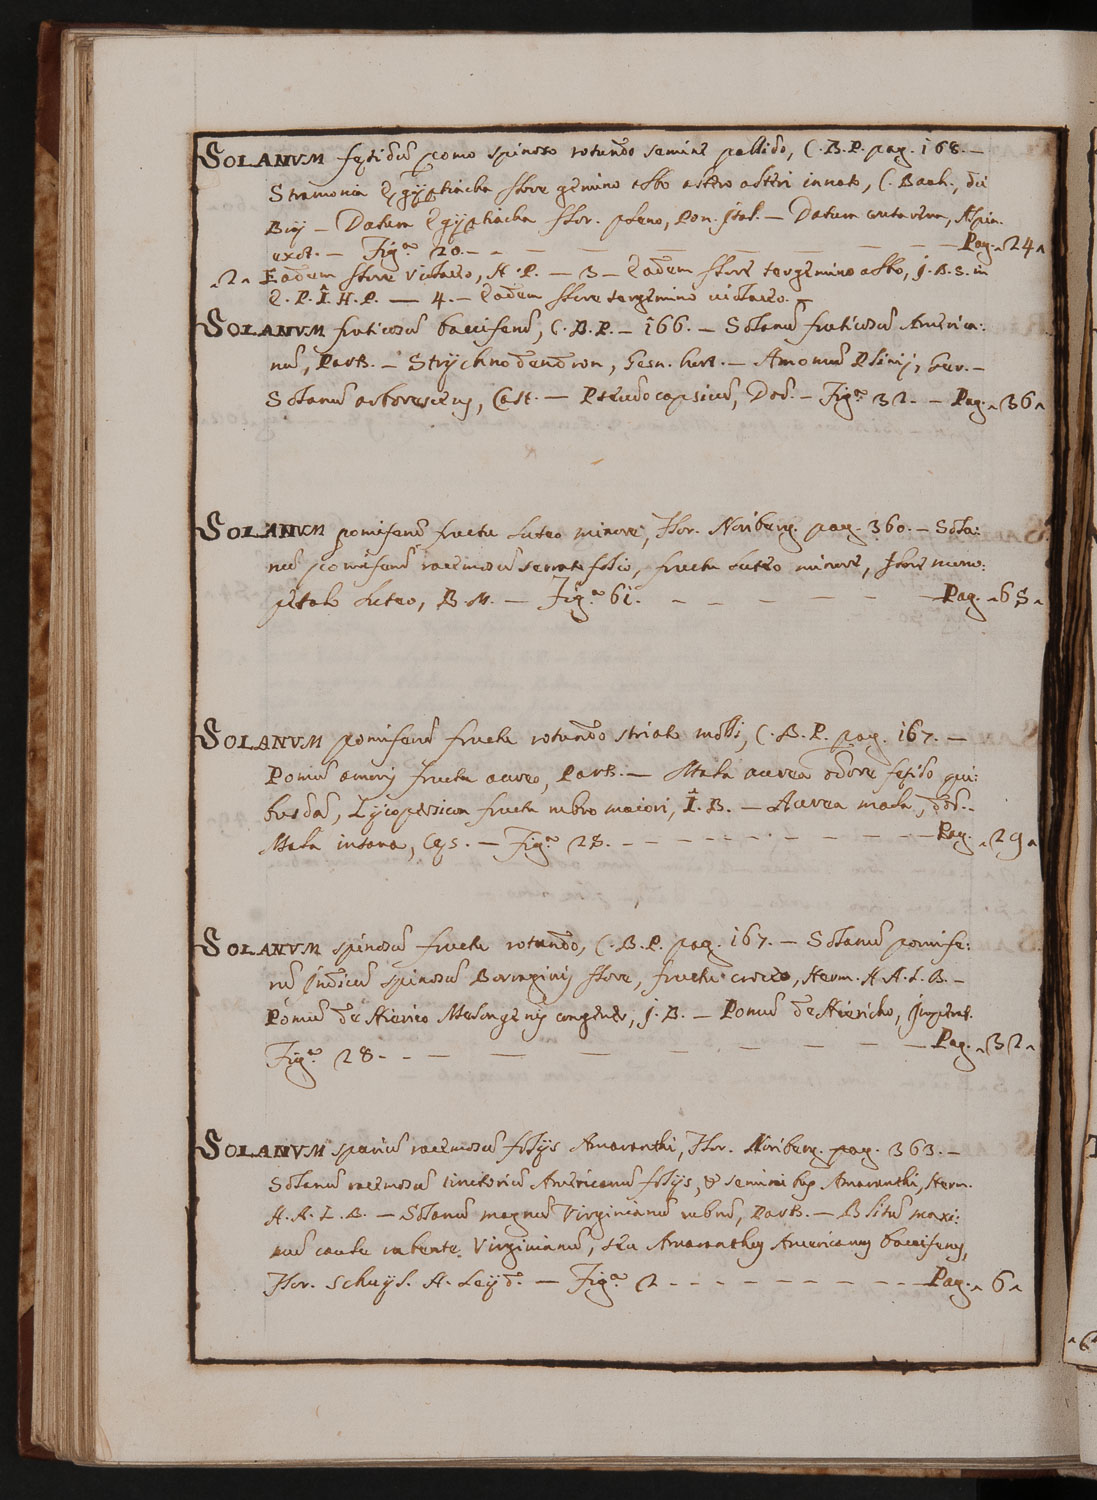 SOLANVM fętidũ pomo spinoso rotundo semine pallido, C.B.P. pag. 168. —
Stramonia Ęgyptiacha flore gemino albo altero alteri innato, C. Bauh.,
— Datura Ęgyptiacha flor. pleno, Pon. Ital. — Datura
exot. — Figᵃ 20. — — — — — Pag. ^24^
^2^ Eadem flore violaceo, H.P. — 3 — Eadem flore tergemino albo, J.B.S. in
E.P.I.H.P. — 4. — Eadem flore tergemino violaceo. —
SOLANVM fruticosũ bacciferũ, C.B.P. — 166. — Solanũ fruticosũ America:
nũ, Park. — Strychnodendron, Gesn. hort. — Amomũ Plinij, Ger. —
Solanũ arborescens, Cast. — Pseudocapsicũ, Dod. — Figᵃ 32. — Pag. ^36^
SOLANVM pomiferũ fructu luteo minore, Flor. Noriberg. pag. 360. — Sola:
nũ pomiferũ racemosũ serrato folio, fructu luteo minore, flore mono:
petalo luteo, B.M. — Figᵃ 61. — — — — — Pag. ^65^
SOLANVM pomiferũ fructu rotundo striato molli, C.B.P. pag. 167. —
Pomũ amoris fructu aureo, Park. — Mala aurea odore fętido qui:
busdã, Lycopersicon fructu rubro maiori, I.B. — Aurea mala, Dod. —
Mala insana, Cęs. — Figᵃ 28. — — — — — Pag. ^29^
SOLANVM spinosũ fructu rotundo, C.B.P. pag. 167. — Solanũ pomife:
rũ Indicũ spinosũ Borraginis flore, fructu croceo, Herm. H.A.L.B. —
Pomũ de Hierico Melongenis congener, J.B. — Pomũ de Hiericho, Imperat.
Figᵃ 28. — — — — — Pag. ^32^
SOLANVM racemosũ folijs Amaranthi, Flor. Noriberg. pag. 363. —
Solanũ racemosũ tinctoriũ Americanũ folijs, & semini bus Amaranthi, Herm.
H.A.L.B. — Solanũ magnũ Virginianũ rubrũ, Park. — Blitũ maxi:
mũ caule rubente Virginianũ, seu Amaranthus Americanus baccifery,
Flor. Schuyl. H. Leyd. — Figᵃ 2 — — — — — Pag. ^6^